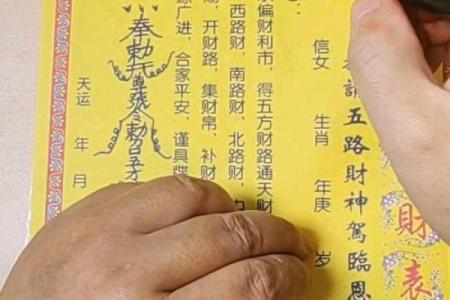 財表
請五路財神駕臨恩
信女 生肖 年庚 岁
偏财利市，得五方财路通天财
西路财，南路财，北路财，
，开财路，集财帛，补财
源广进，合家平安，谨具牒
奉敕
天运 年 月